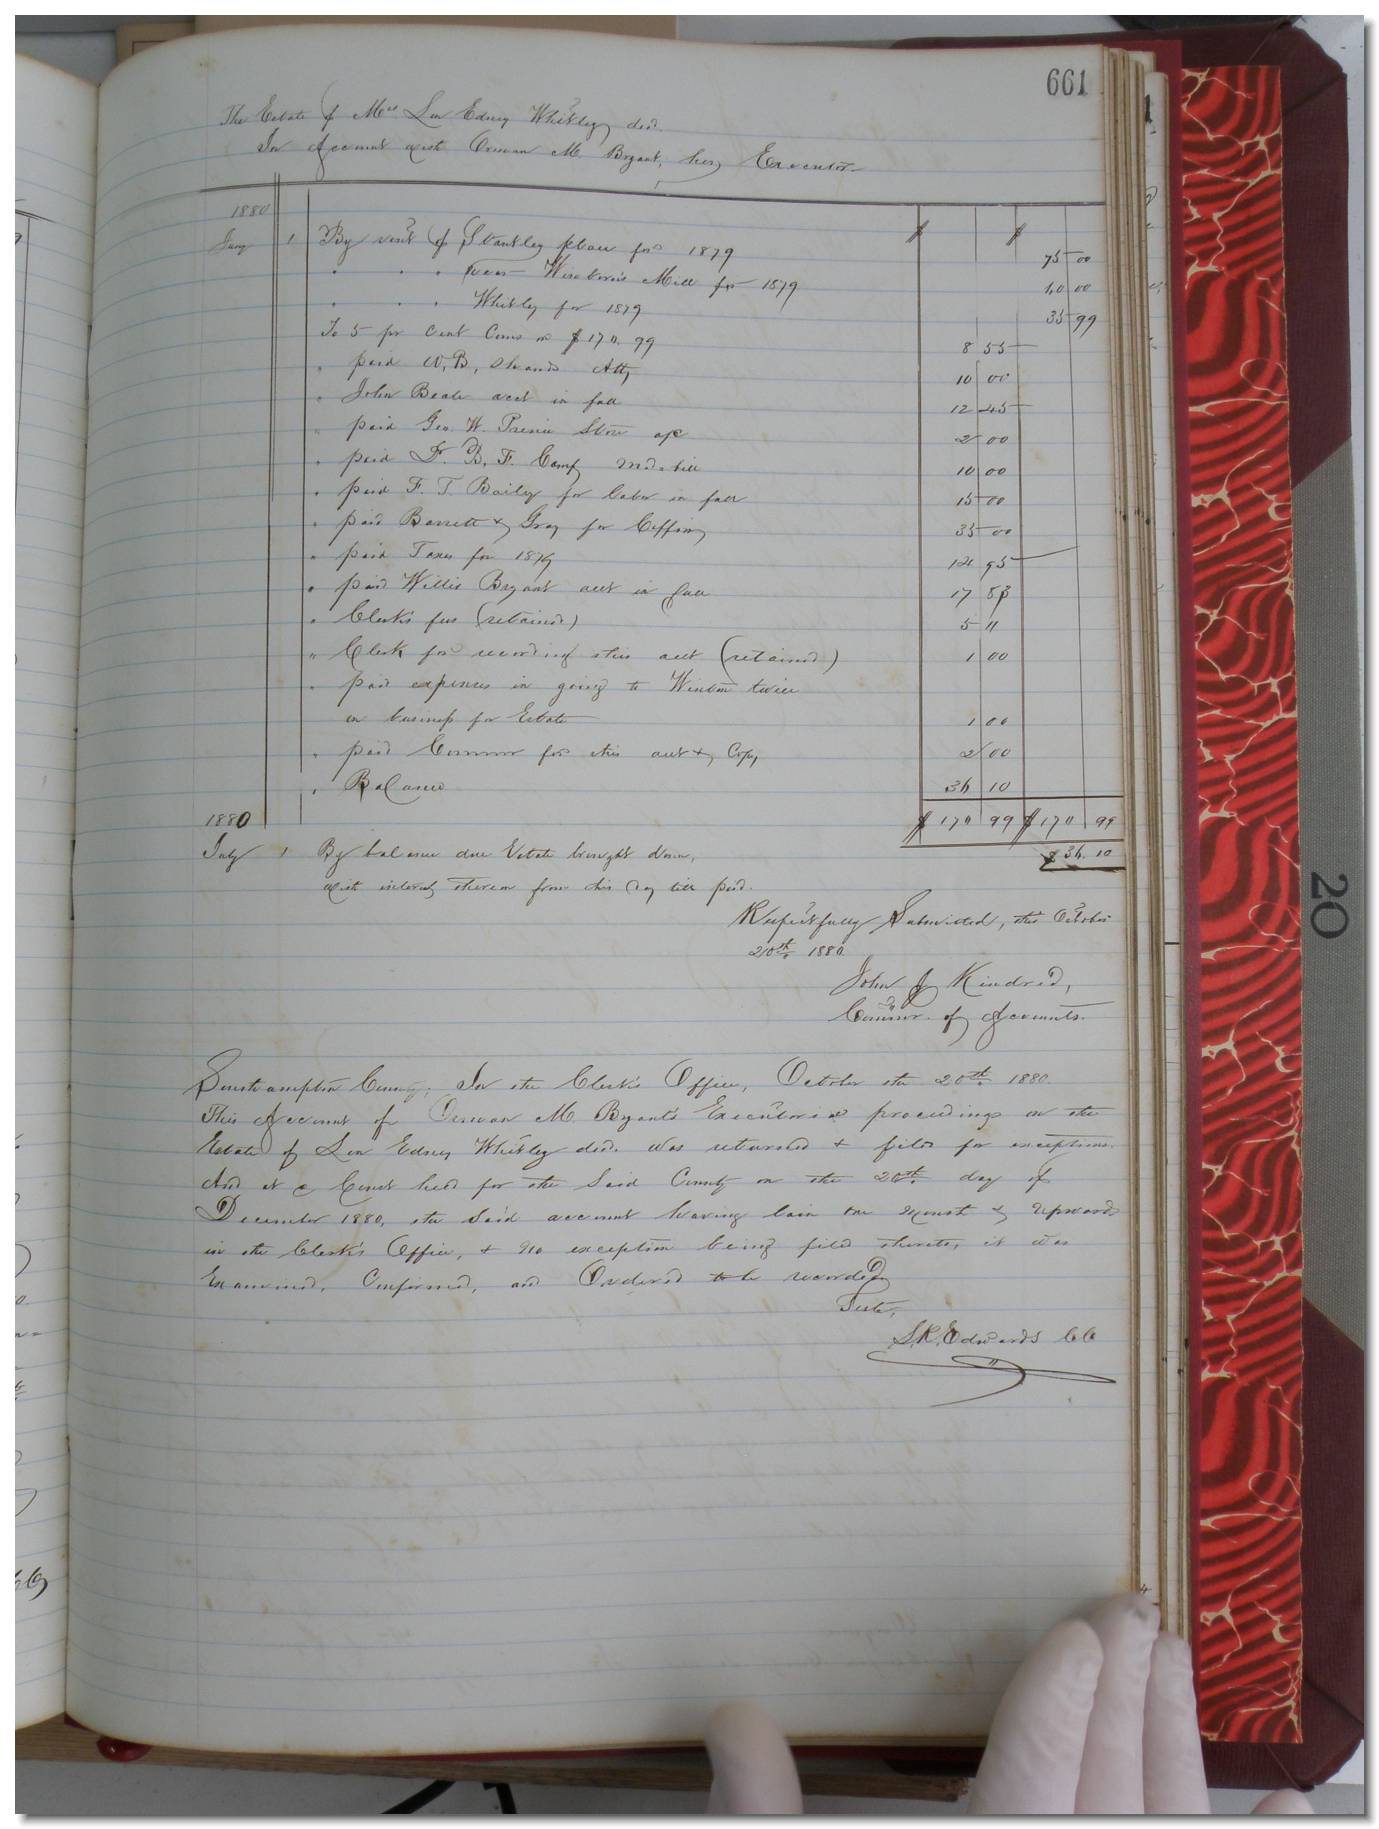 661
The Estate of Mrs Lou Edney Whitley decd.
In Account with Orman M. Bryant, her Executor
1880
Jany 1 By rent of Stankley place for 1879 75 00
" " " near Winborn's Mill for 1879 60 00
" " " Whitley for 1879 35 99
To 5 per Cent Coms on $170.99 8 55
" paid W. B. Shands Atty 10 00
" John Beale acct in full 12 45
" paid Geo. W. Store a/c 2 00
" paid Dr. B. F. Camp Med. bill 10 00
" paid F. T. Bailey for labor in full 15 00
" paid Barrett & Gray for Coffin 35 00
" paid Taxes for 1879 14 95
" paid Willis Bryant acct in full 17 83
" Clerk's fees (retained) 5 11
" Clerk for recording this acct (retained) 1 00
" paid expenses in going to Winton twice
on business for Estate 1 00
" paid Commr for this acct & Copy 2 00
" Balance 36 10
1880 $ 170 99 $ 170 99
July 1 By balance due Estate brought down, $ 36.10
with interest thereon from this day till paid.
Respectfully Submitted, this October
20th 1880
John J Kindred,
Commr. of Accounts.
Southampton County; In the Clerk's Office, October the 20th 1880.
This Account of Orman M. Bryant's Executorial proceedings on the
Estate of Lou Edney Whitley decd. was returned & filed for exceptions.
And at a Court held for the said County on the 20th day of
December 1880, the said account having lain one month & upwards
in the Clerk's Office, & no exception being filed thereto, it was
Examined, Confirmed, and Ordered to be recorded
Teste,
S. R. Edwards CC
20